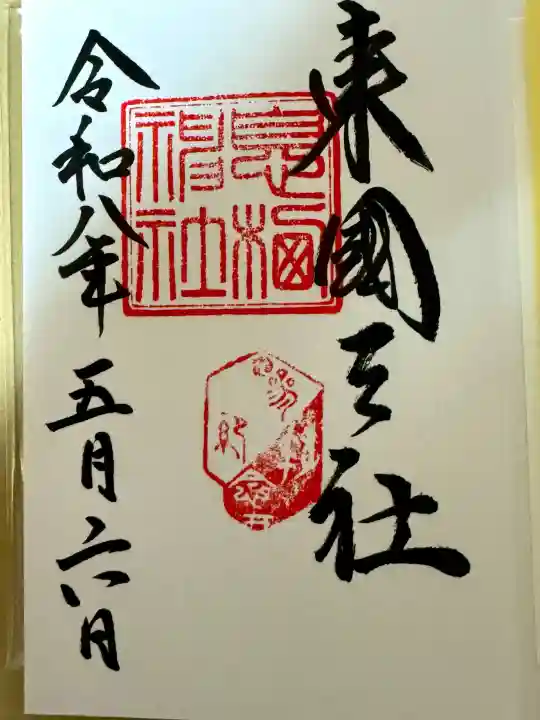 東國三社
息栖
神社
令和八年五月六日